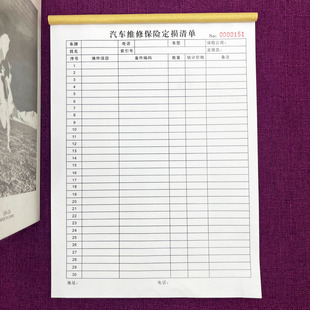 汽车维修保险定损清单
No: 0000151
车牌 电话 车型 保险公司:
姓名 索引号 定损员:
序号 换件项目 备件编码 数量 估计价格 备注
1
2
3
4
5
6
7
8
9
10
11
12
13
14
15
16
17
18
19
20
21
22
23
24
25
26
27
28
29
30
地址: 电话: